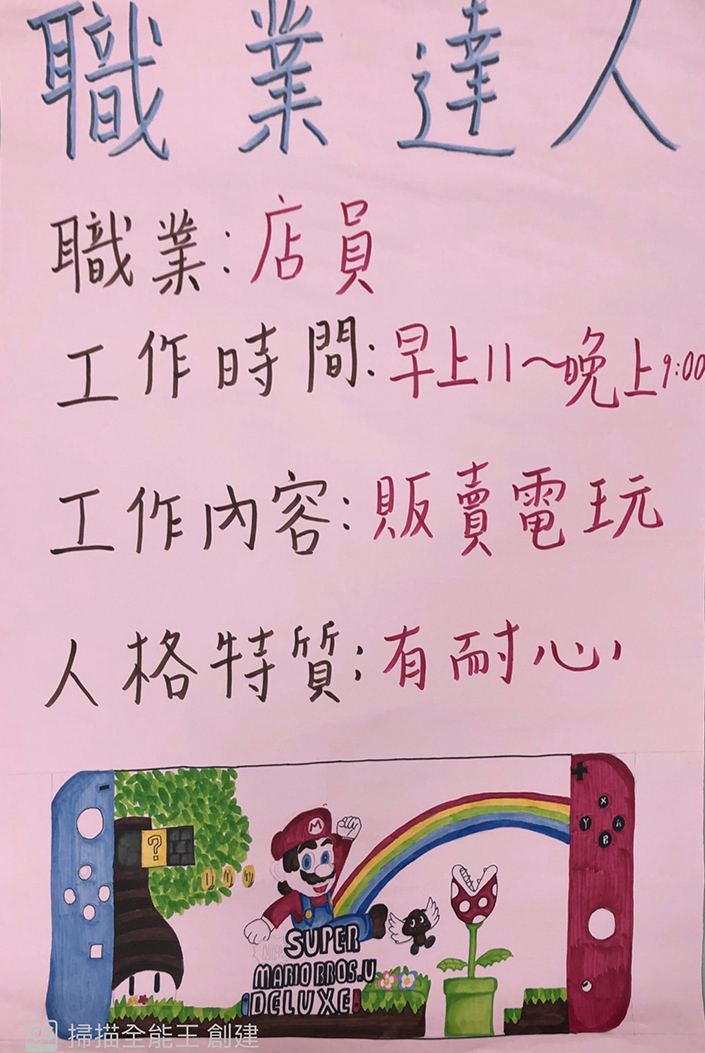 職業達人
職業:店員
工作時間:早上11～晚上9:00
工作內容:販賣電玩
人格特質:有耐心
?
M
X
Y A
B
SUPER
MARIO BROS.U
DELUXE
掃描全能王 創建